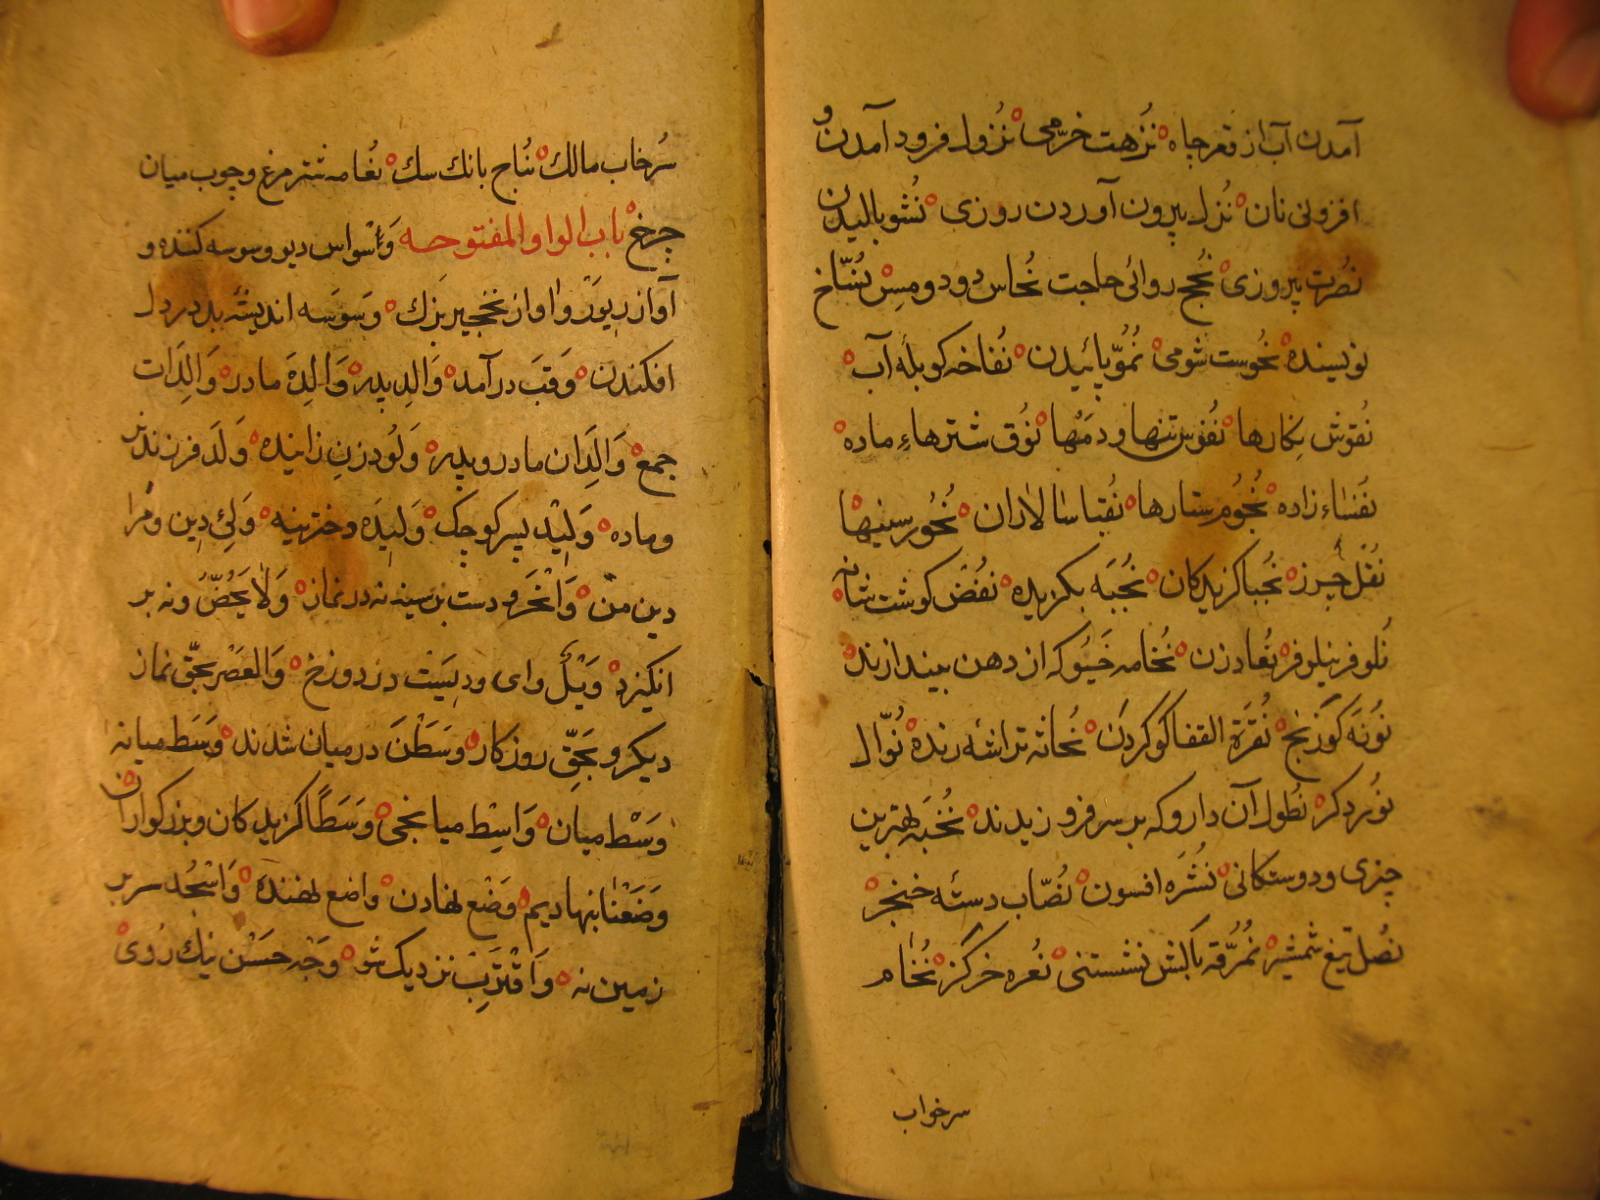 آمدن آب از قعر چاه نُزهت خرّمی نُزول فرود آمدن و
افزونی نان نُزل بیرون آوردن روزی نُشو بالیدن
نُصرت پیروزی نُجح روائی حاجت نُحاس دود و مس نُسّاخ
نویسنده نُحوست شومی نُموّ پائیدن نُفاخه کوبله آب
نُقوش نکارها نُفوس تنها و دمها نُوق شترهاء ماده
نُفَساء زاده نُجُوم ستارها نُقبا سالاران نُحُور سینها
نُقل چرز نُجبا کزیدکان نُجَبَه بکزیده نُغُض کوشت شانه
نُلوفر نیلوفر نُعاد زن نُخامه خیوکه از دهن بیندازند
نُونَه کَوزنخ نُقرَة القفا کو کردَن نُحاته تراشه رنده نُوّال
نُورد کر نُطُول آن دارو که بر سر فرو زیدند نُخبَه بهترین
چیزی و دوستکانی نُشرَه افسون نُصّاب دسته خنجر
نُصُل تیغ شمشیر نُمرُقه بالش نشستنی نُعره خرکز نُخام
سرخواب
سُرخاب مالک نُباح بانك سك نُعامه شترمرغ و چوب میان
چرخ باب الواو المفتوحه وَسْواس دیو وسوسه کننده و
آواز زیوَر وَاواز نخچیر بَزك وَسوَسَه اندیشهٔ بد در دل
افکندن وَقَبَ در آمد وَالِد پدر وَالِدَة مادر وَالِدَات
جمع وَالِدَان مادر و پدر وَلُود زن زاینده وَلَد فرزند نر
و ماده وَلِیْد پسر کوچک وَلِیدَه دخترینه وَلِیَ دِین و مرا
دین من وَانْحَر و دست بر سینه نه در نماز وَلَا یَحُضُّ و نه بر
انکیزد وَیْلٌ وای و دیست در دوزخ وَالعَصْر بحقّ نماز
دیکر و بحَقّ روزکار وَسَطْنَ در میان شدند وَسَط میانه
وَسْط میان وَاسِط میانجی وَسَطًا کزیدکان و بزرکواران
وَضَعْنَا بنهادیم وَضْع نهادن واضع نهنده وَاسْجُد سر بر
زمین نه وَاقْتَرِبْ نزدیک شو وَجْه حَسَن نیك رُوی